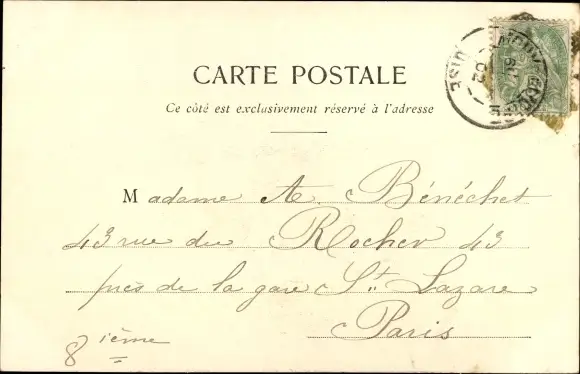 CARTE POSTALE
Ce côté est exclusivement réservé à l'adresse
Madame A. Bénéchet
43 rue du Rocher 43
près de la gare St. Lazare
Paris
8 ième